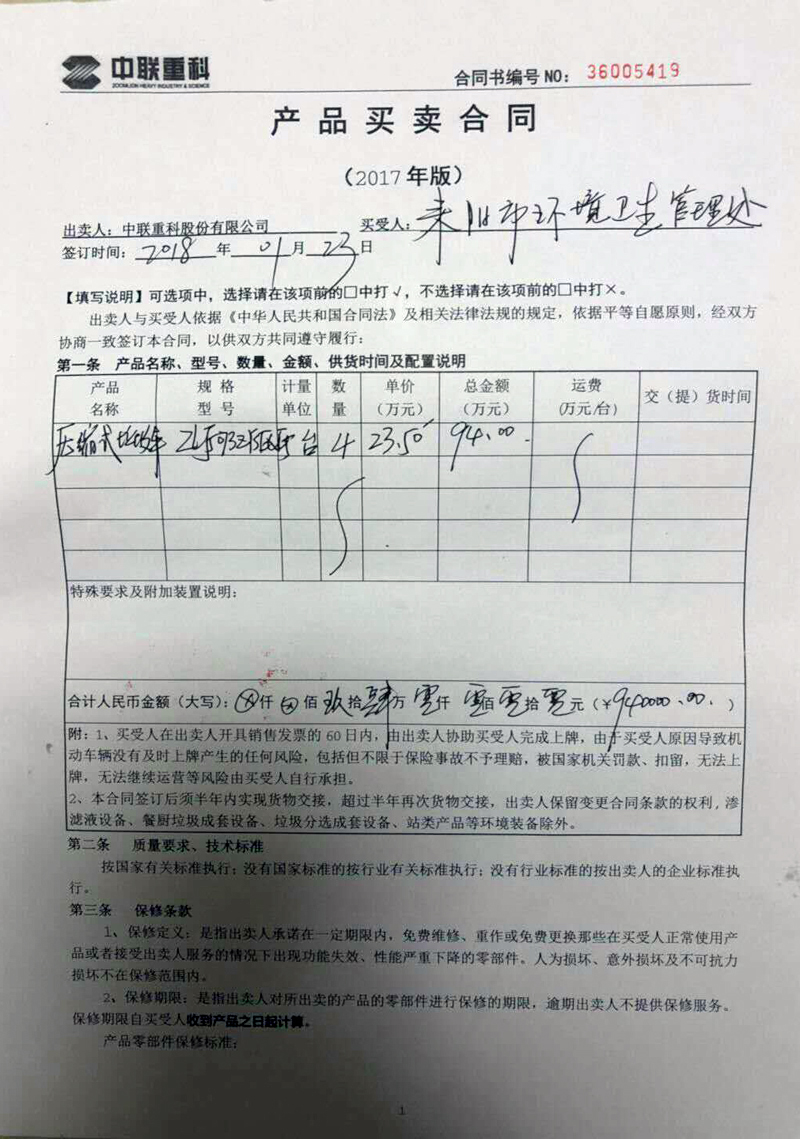 中联重科
ZOOMLION HEAVY INDUSTRY & SCIENCE
合同书编号 NO： 36005419
产品买卖合同
（2017 年版）
出卖人：中联重科股份有限公司 买受人：耒阳市环境卫生管理处
签订时间：2018 年 01 月 23 日
【填写说明】可选项中，选择请在该项前的□中打√，不选择请在该项前的□中打×。
出卖人与买受人依据《中华人民共和国合同法》及相关法律法规的规定，依据平等自愿原则，经双方
协商一致签订本合同，以供双方共同遵守履行：
第一条 产品名称、型号、数量、金额、供货时间及配置说明
产品名称 规格型号 计量单位 数量 单价（万元） 总金额（万元） 运费（万元/台） 交（提）货时间
压缩式垃圾车 台 4 23.50 94.00
特殊要求及附加装置说明：
合计人民币金额（大写）：⊗仟 佰 玖拾 肆万 零仟 零佰 零拾 零元（￥940000.00.）
附：1、买受人在出卖人开具销售发票的 60 日内，由出卖人协助买受人完成上牌，由于买受人原因导致机
动车辆没有及时上牌产生的任何风险，包括但不限于保险事故不予理赔，被国家机关罚款、扣留，无法上
牌，无法继续运营等风险由买受人自行承担。
2、本合同签订后须半年内实现货物交接，超过半年再次货物交接，出卖人保留变更合同条款的权利，渗
滤液设备、餐厨垃圾成套设备、垃圾分选成套设备、站类产品等环境装备除外。
第二条 质量要求、技术标准
按国家有关标准执行；没有国家标准的按行业有关标准执行；没有行业标准的按出卖人的企业标准执
行。
第三条 保修条款
1、保修定义：是指出卖人承诺在一定期限内，免费维修、重作或免费更换那些在买受人正常使用产
品或者接受出卖人服务的情况下出现功能失效、性能严重下降的零部件。人为损坏、意外损坏及不可抗力
损坏不在保修范围内。
2、保修期限：是指出卖人对所出卖的产品的零部件进行保修的期限，逾期出卖人不提供保修服务。
保修期限自买受人收到产品之日起计算。
产品零部件保修标准：
1